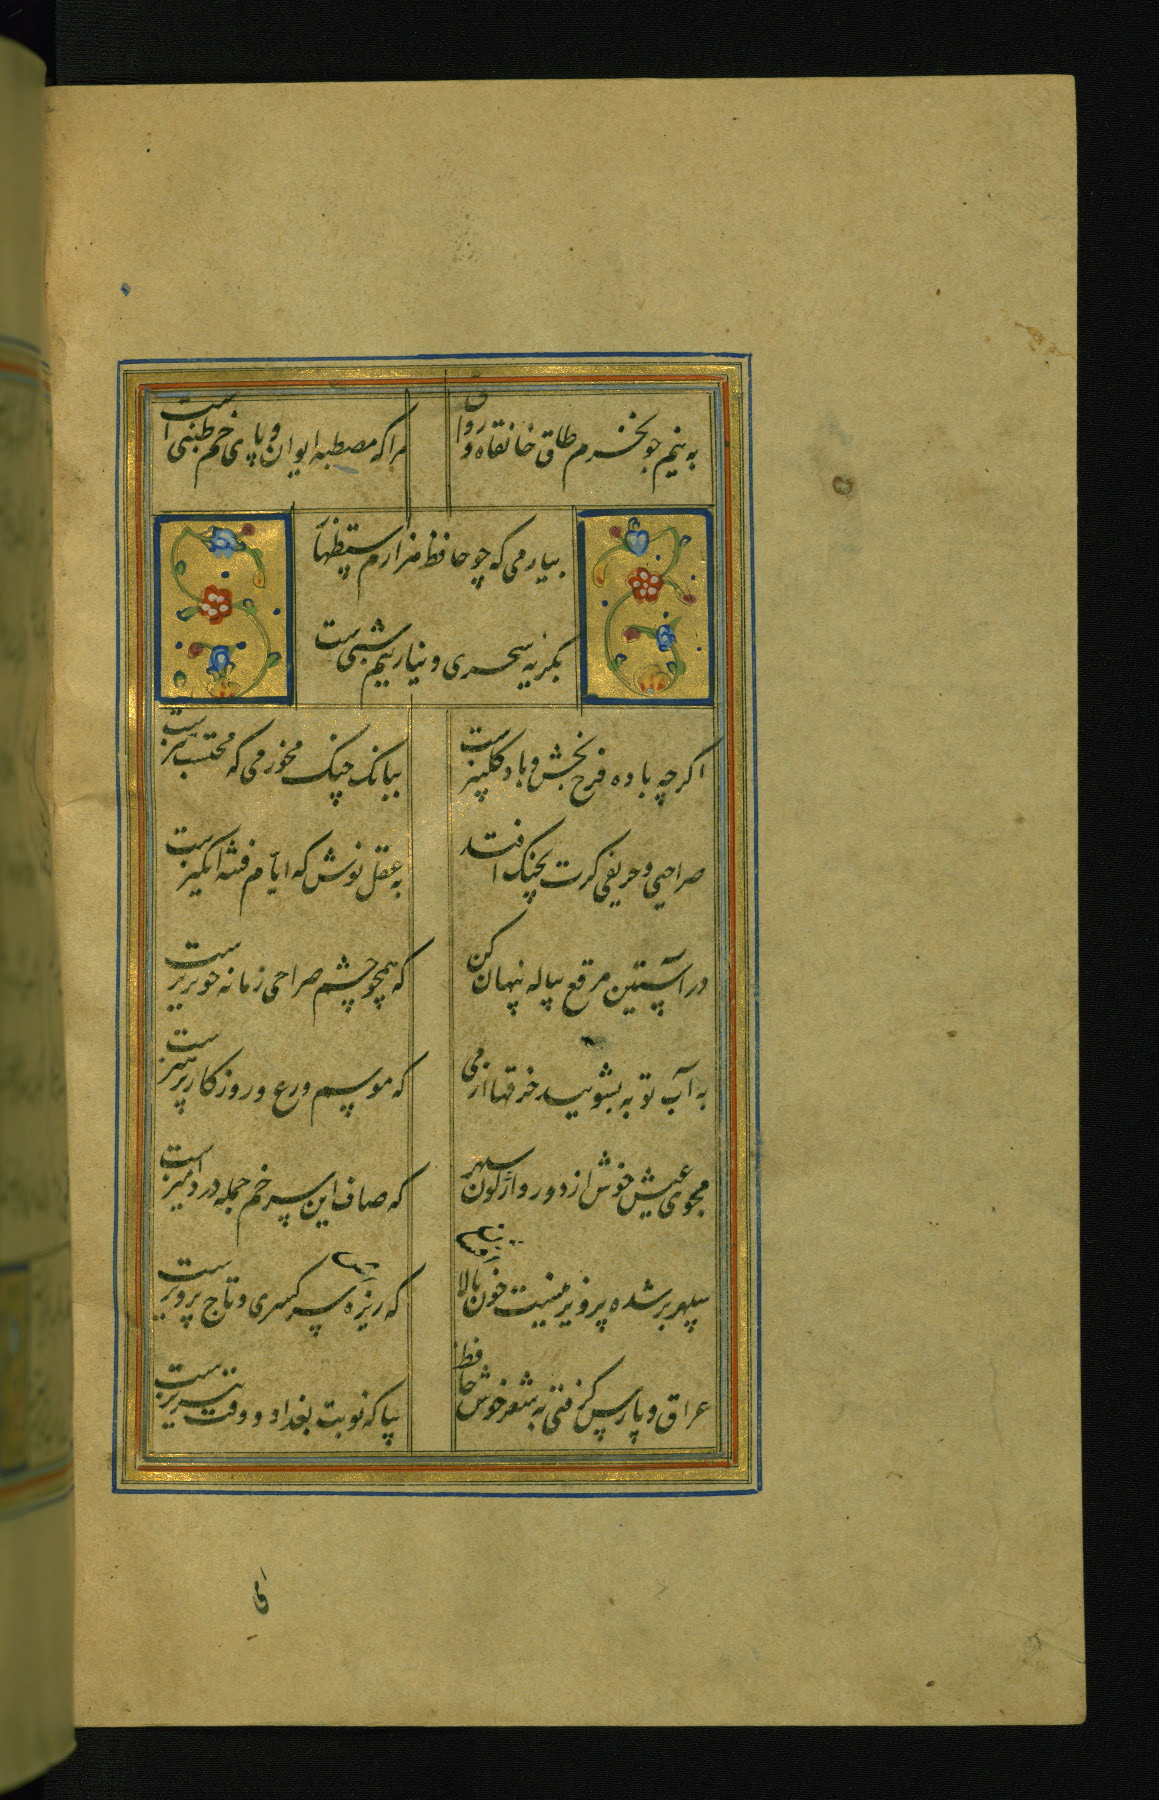 به نیم جو نخرم طاق خانقاه و رواق
مرا که مصطبه ایوان و پای خم طنبی است
بیار می که چو حافظ مدارم استظهار
بگریه سحری و نیاز نیم شبیست
اگرچه باده فرح بخش و باد گلبیزست
ببانگ چنگ مخور می که محتسب تیزست
صراحیی و حریفی گرت بچنگ افتد
به عقل نوش که ایّام فتنه انگیزست
در آستین مرقع پیاله پنهان کن
که همچو چشم صراحی زمانه خونریزست
به آب توبه بشوئید خرقها از می
که موسم ورع و روزگار پرهیزست
مجوی عیش خوش از دور واژگون سپهر
که صاف این سر خم جمله درد آمیز است
سپهر بر شده پرویزنیست خون پالا
که ریزه سر کسری و تاج پرویزست
عراق و پارس گرفتی به شعر خوش حافظ
بیا که نوبت بغداد و وقت تبریزست